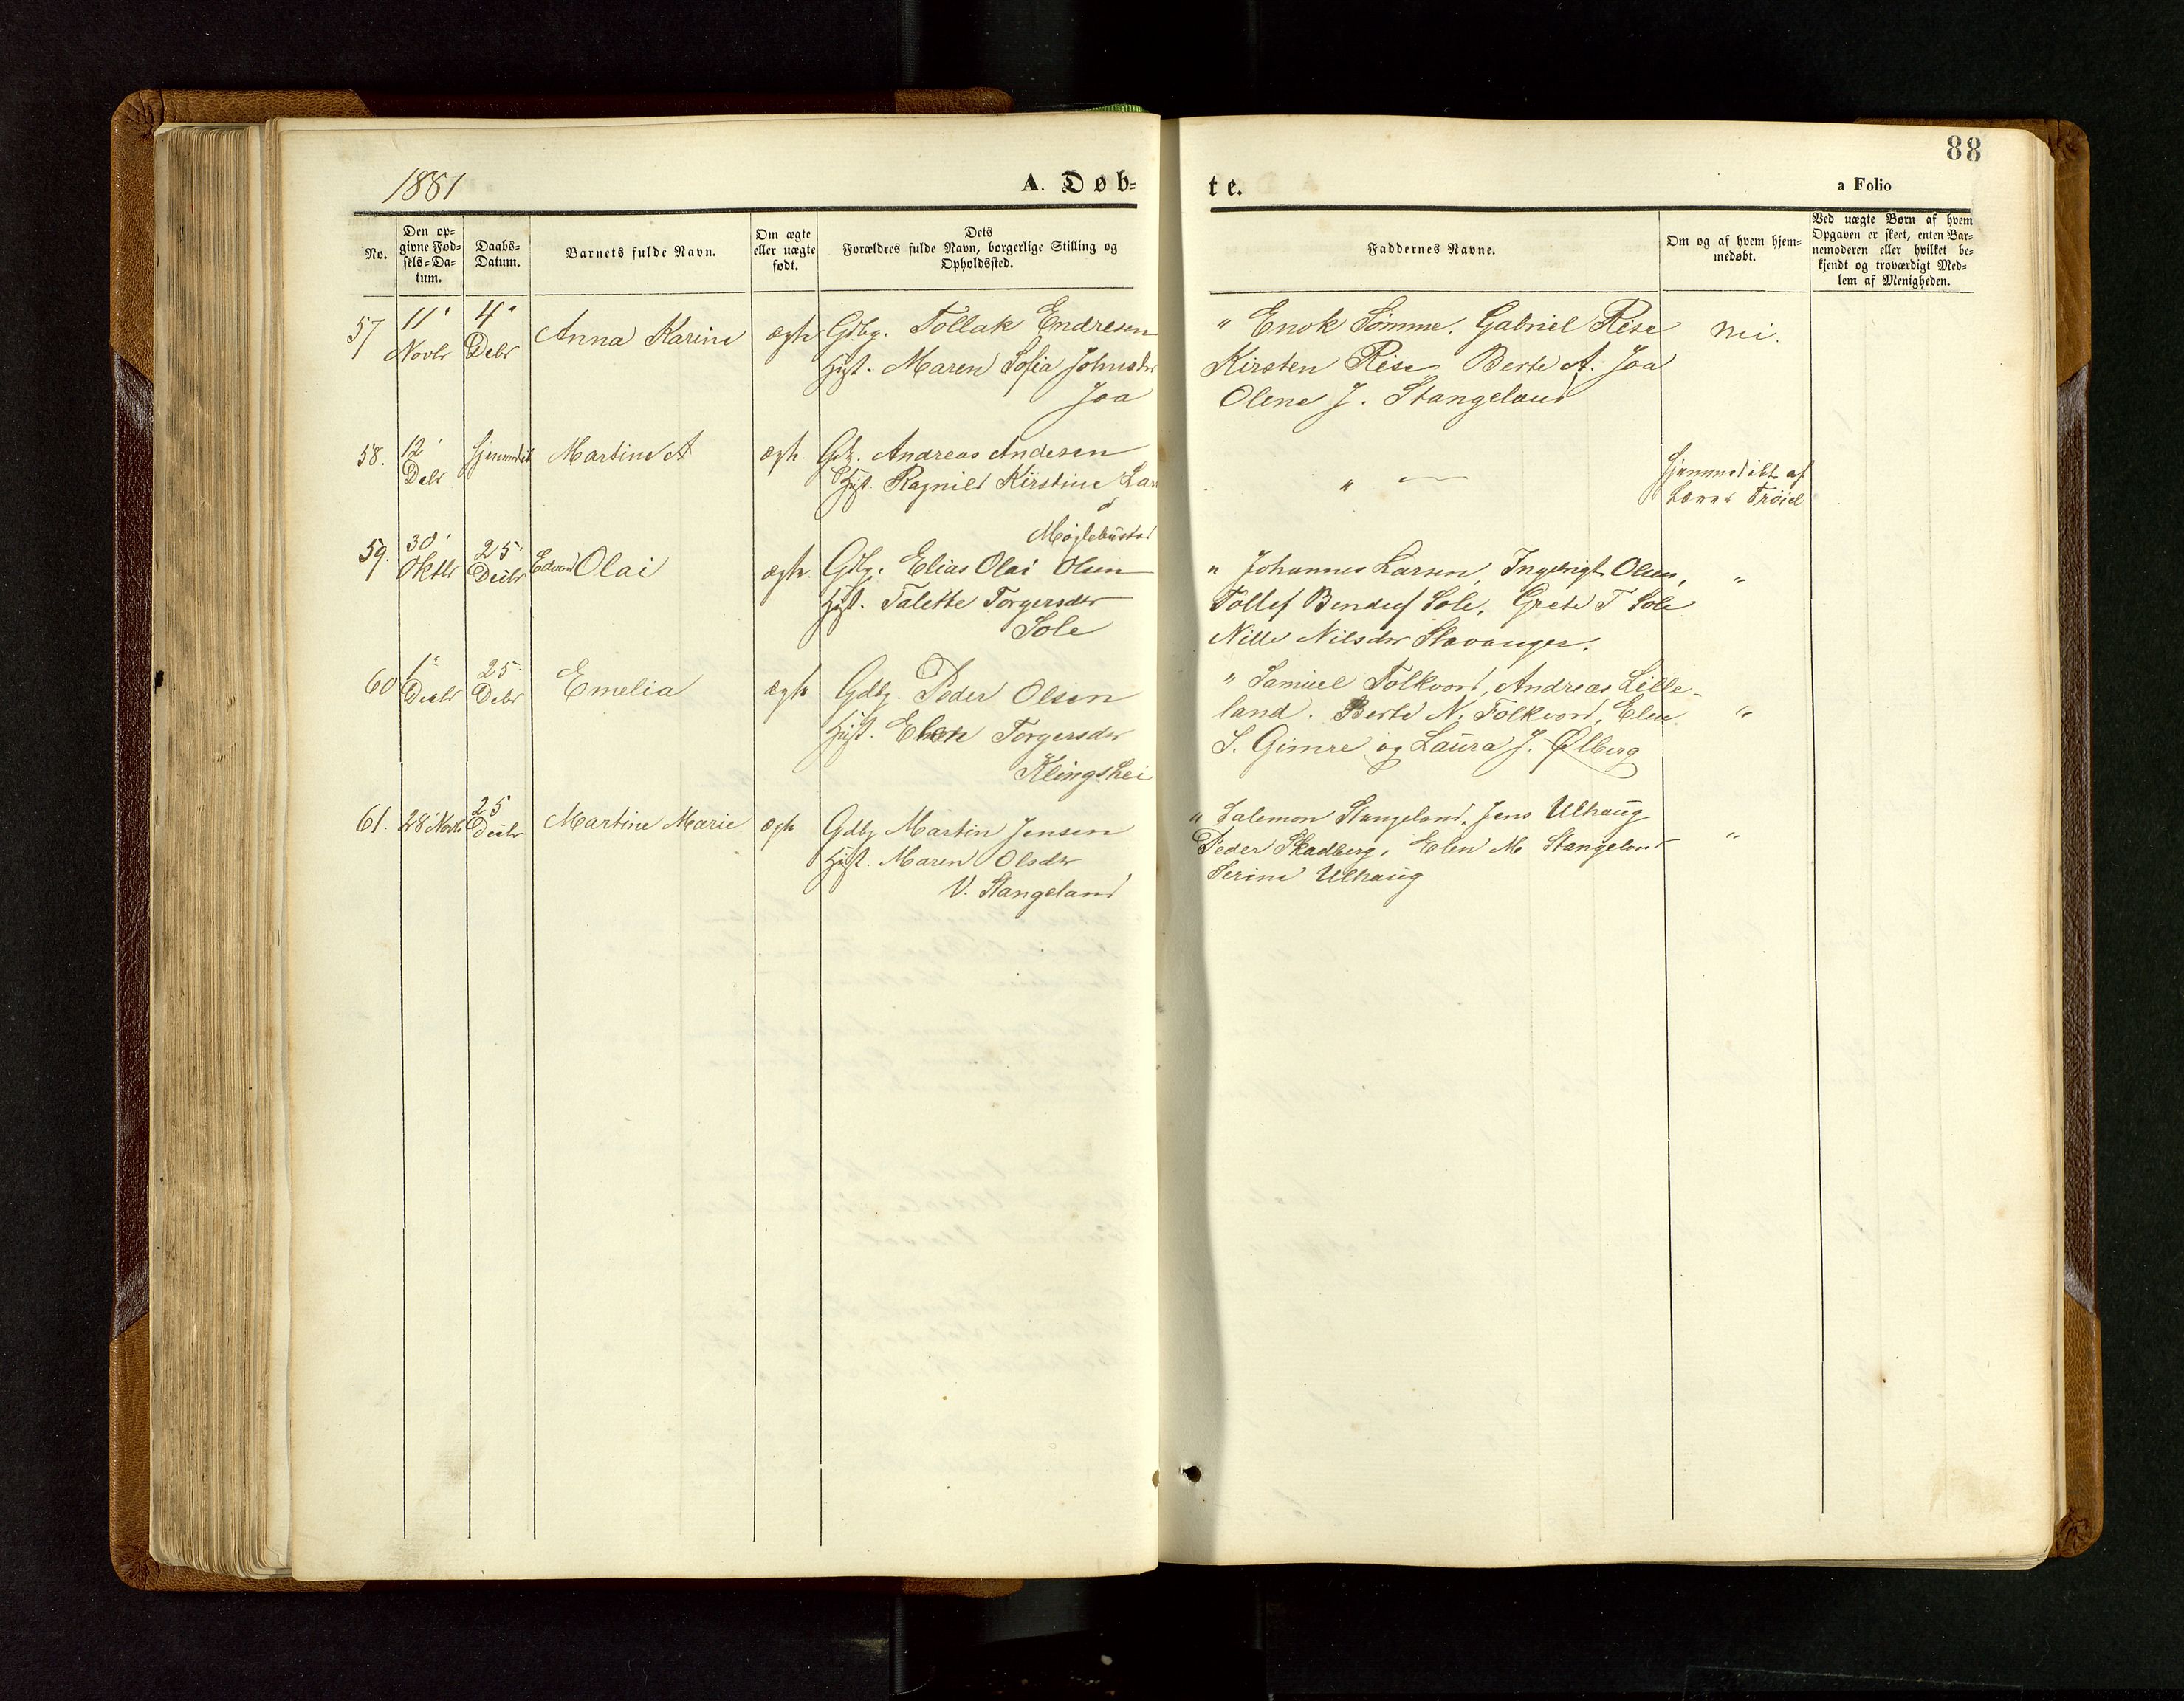 88
1881
A. Døb-
te.
a Folio
No.
Den op-
givne Fød-
sels-Da-
tum.
Daabs-
Datum.
Barnets fulde Navn.
Om ægte
eller uægte
født.
Dets
Forældres fulde Navn, borgerlige Stilling og
Opholdssted.
Faddernes Navne.
Om og af hvem hjem-
medøbt.
Ved uægte Børn af hvem
Opgaven er skeet, enten Bar-
nemoderen eller hvilket be-
kjendt og troværdigt Med-
lem af Menigheden.
57
11'
Novbr
4'
Debr
Anna Karine
ægte
Gdbg. Tollak Endresen
Hust. Maren Sofia Johnsdr
Joa
" Enok Sømme, Gabriel Rise
Kirsten Rise Berte A. Joa
Olene J. Stangeland
nei.
58.
12'
Debr
Hjemmedøbt
Martine A
ægt.
Gdb. Andreas Andesen
Hust. Ragnild Kirstine Lar
d
Møglebustad
" —
Hjemmedøbt af
Lærer Trøiel
59.
30'
Oktbr
25'
Decbr
Edvard Olai
ægte.
Gdbg. Elias Olai Olsen
Hust. Talette Torgersdr
Sole
" Johannes Larsen, Ingebrigt Olsen,
Tollef Sole, Grete T Sole
Nille Nilsdr Stavanger.
"
60
1'
Decbr
25'
Debr
Emelia
ægte
Gdbg. Peder Olsen
Hust. Elen Torgersdr
Klingshei
" Samuel Folkvord, Andreas Lille-
land. Berte N. Folkvord, Elen
S. Gimre og Laura J. Ølberg
"
61.
28 Novbr
25
Decbr
Martine Marie
ægte
Gdbg Martin Jensen
Hust. Maren Olsdr
V. Stangeland
" Salemon Stangeland, Jens Ulhaug
Peder Skadberg, Elen M Stangeland
Serine Ulhaug
"